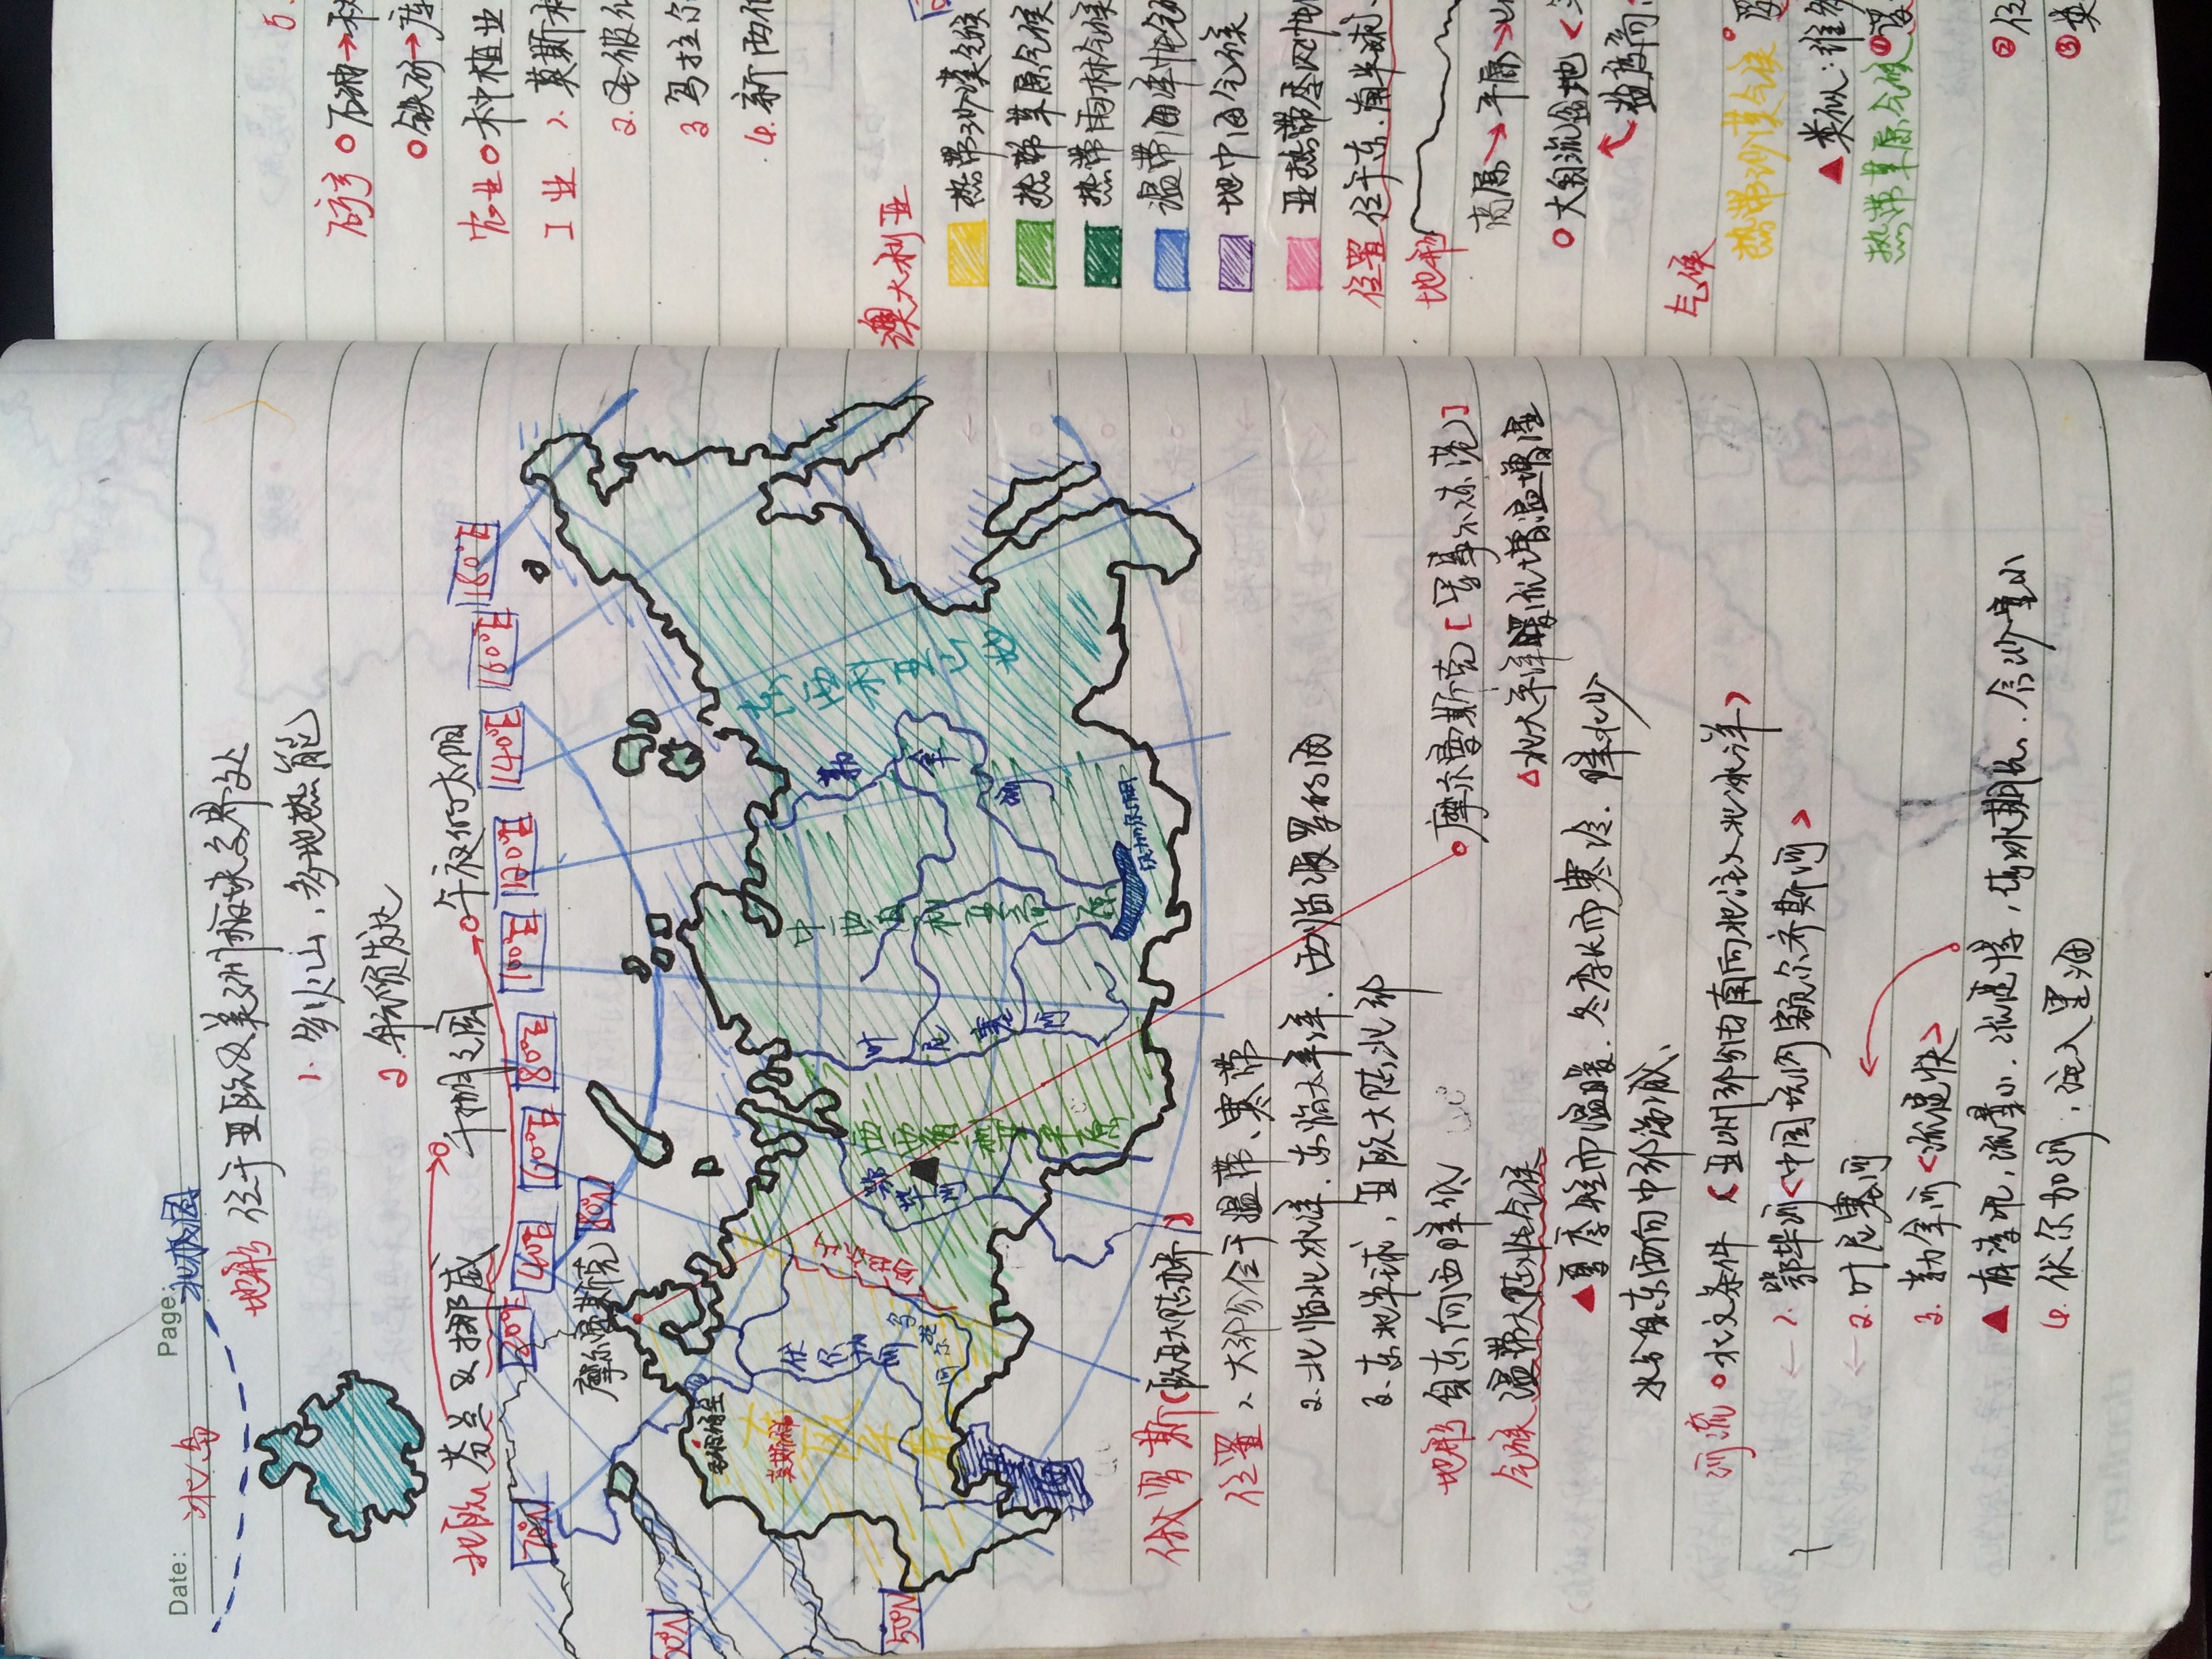 Date:
Page:
冰岛
北极圈
地形 位于亚欧&美洲板块交界处
1. 多火山，多地热能
2. 航颁发达
北欧 芬兰&挪威
千湖之国
午夜的太阳
70°N
20°E
40°E
60°E
80°E
100°E
120°E
140°E
160°E
180°E
摩尔曼斯克
80°N
60°N
圣彼得堡
莫斯科
东欧平原
伏尔加河
乌拉尔山
乌拉尔河
50°N
鄂毕河
西西伯利亚平原
叶尼塞河
中西伯利亚高原
勒拿河
东西利亚山地
贝加尔湖
俄罗斯（欧亚大陆桥）
位置 1. 大部分位于温带、寒带
2. 北临北冰洋，东临太平洋，西临波罗的海
3. 东北半球，亚欧大陆北部
地形 自东向西降低
摩尔曼斯克［军事不冻港］
△北大平洋暖流增温增湿
气候 温带大陆性气候
▲夏季短而温暖，冬季长而寒冷，降水少
水分自东西向中部递减、
河流 ○水文条件 <亚洲部分由南向北注入北冰洋>
← 1. 鄂毕河<中国境内额尔齐斯河>
← 2. 叶尼塞河
3. 勒拿河<流速快>
▲有凌汛，流量小，流速慢，结冰期长，含沙量小
4. 伏尔加河，注入里海
5.
矿产 ○石油→
○铁矿→库
农业○种植业
工业 1. 莫斯科
2. 圣彼
3 乌拉尔
4. 新西
澳大利亚
热带沙漠气候
热带草原气候
热带雨林气候
温带海洋性气
地中海气候
亚热带季风性
位置 位于东、南半球、
地形
高原→平原→山
○大自流盆地<
盐度高
气候
热带沙漠气候
▲类似：维多
热带草原气候 ①
② 位
③ 英